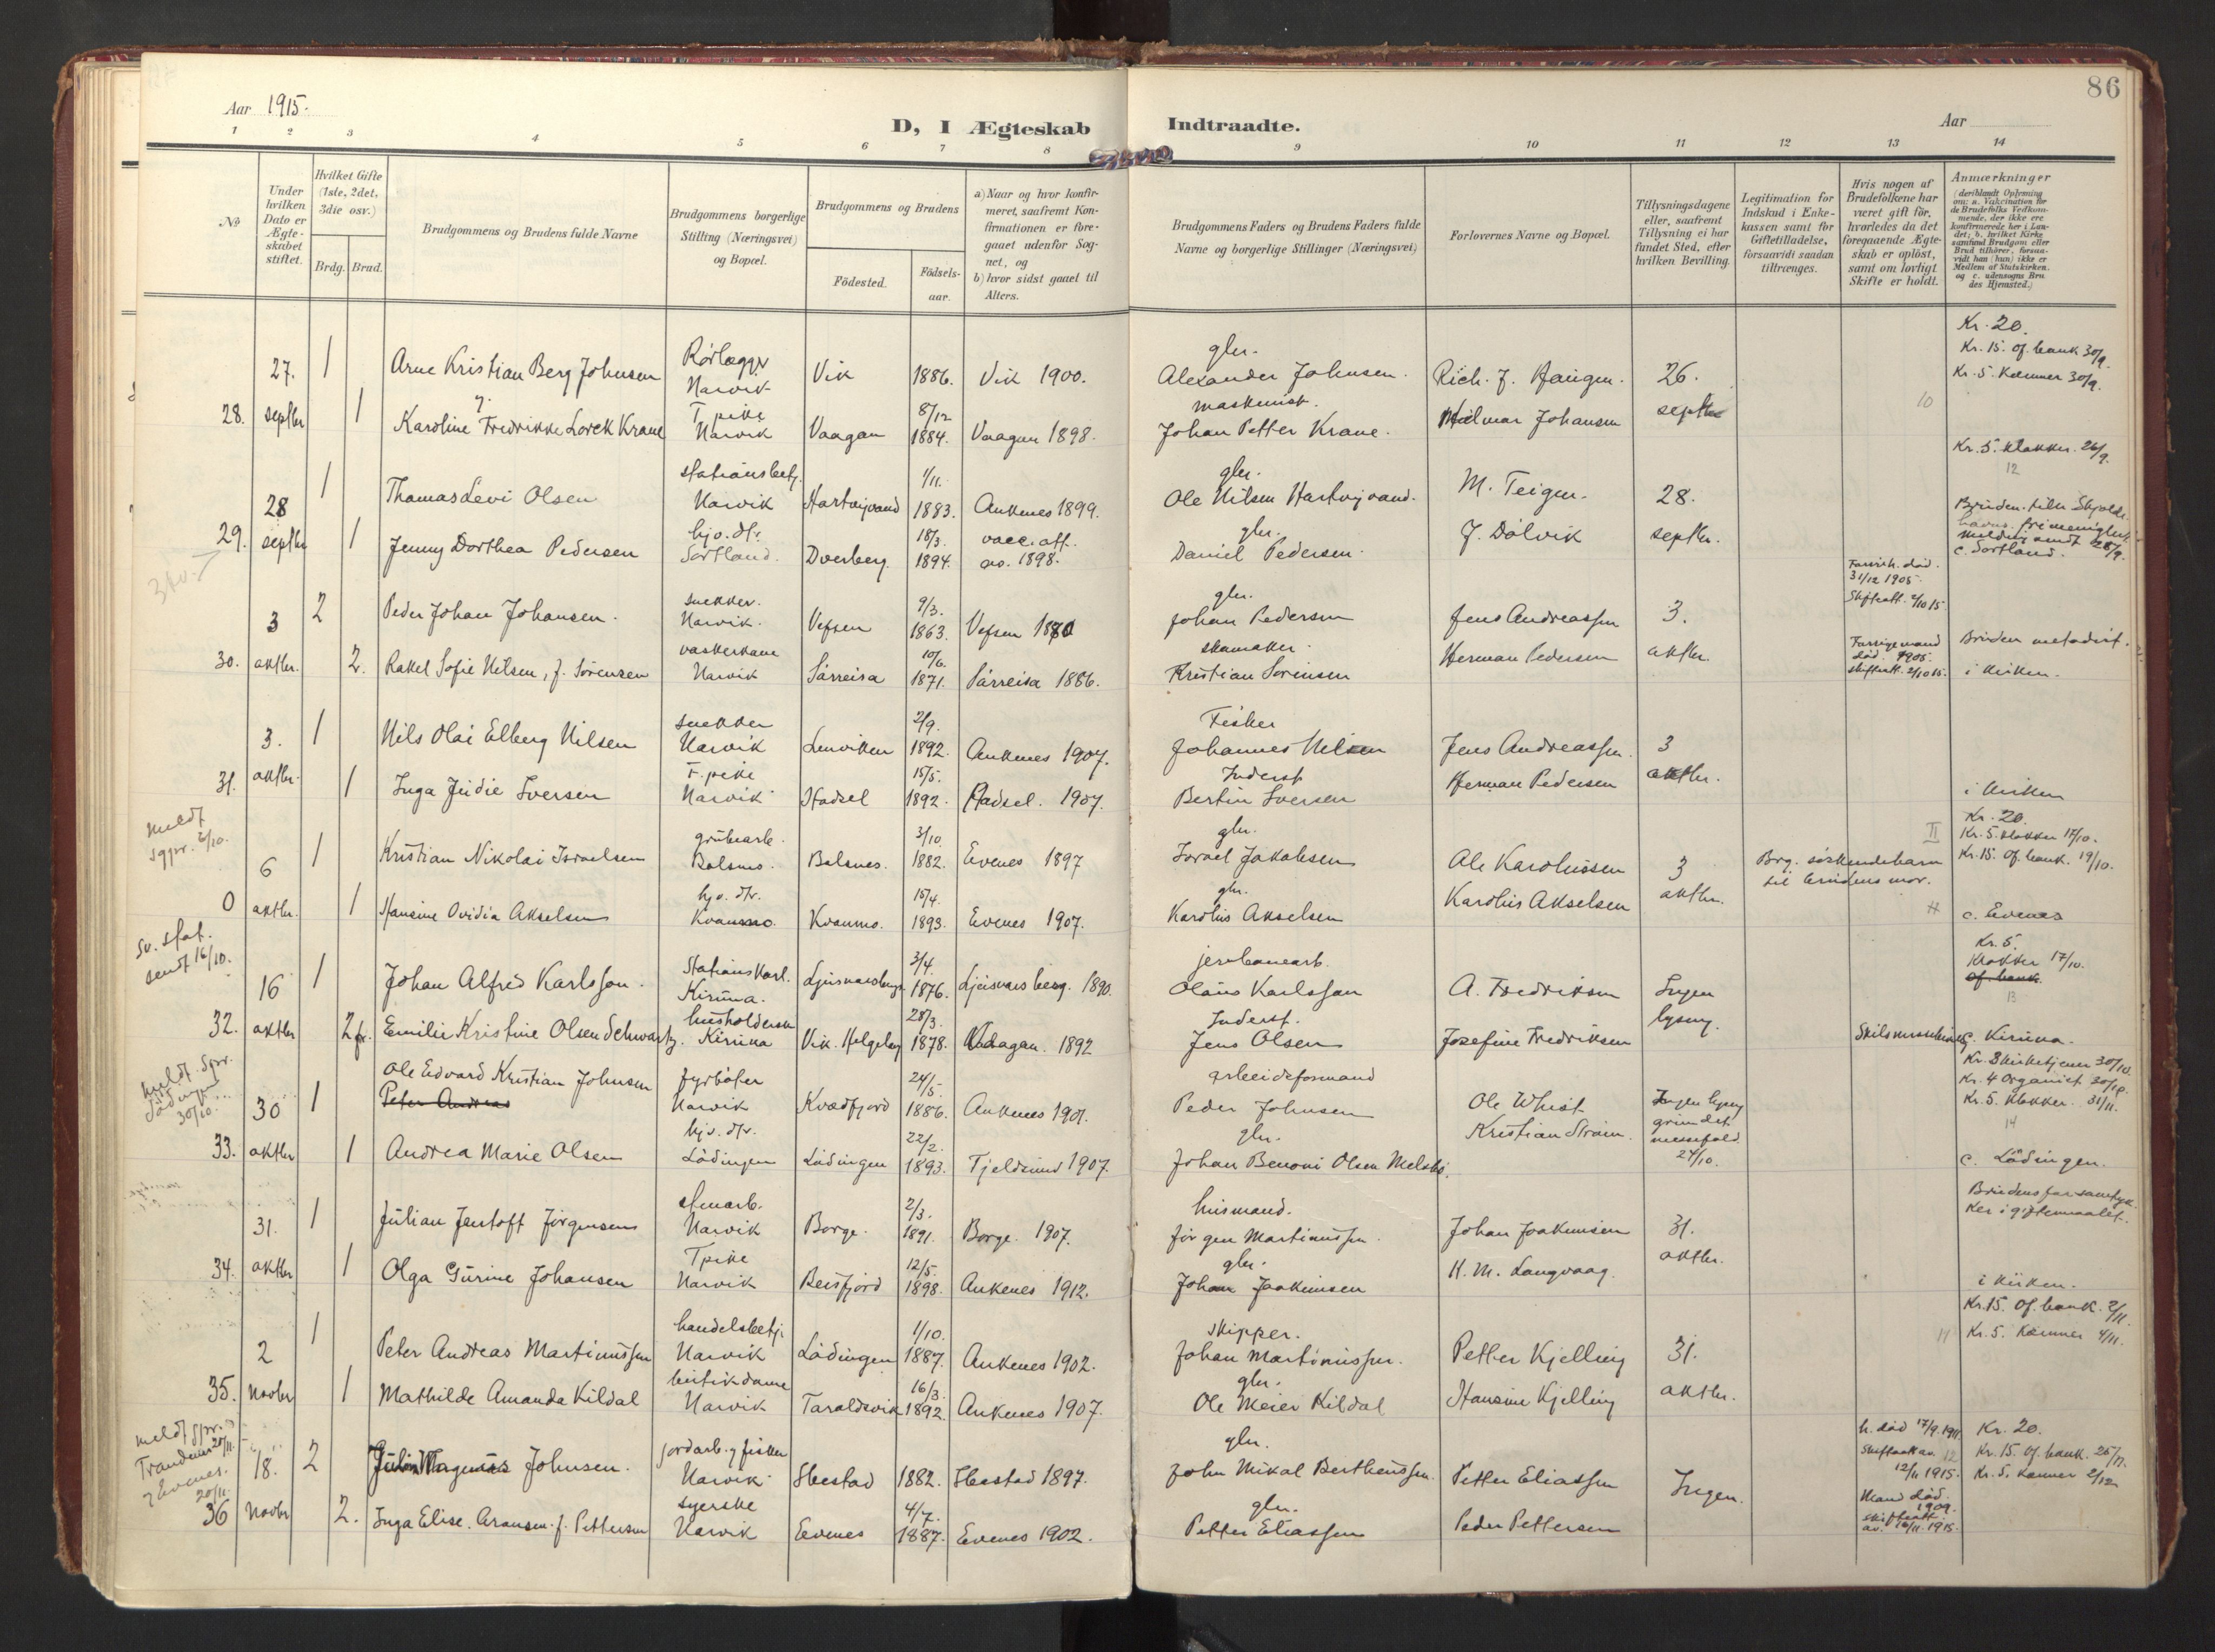 86
Aar 1915.
D, I Ægteskab Indtraadte.
Aar
1 2 3 4 5 6 7 8 9 10 11 12 13 14
№
Under hvilken Dato er Ægteskabet stiftet.
Hvilket Gifte (1ste, 2det, 3die osv.)
Brdg. Brud.
Brudgommens og Brudens fulde Navne
Brudgommens borgerlige Stilling (Næringsvei) og Bopæl.
Brudgommens og Brudens
Födested.
Födsels-aar.
a) Naar og hvor konfirmeret, saafremt Konfirmationen er foregaaet udenfor Sognet, og
b) hvor sidst gaaet til Alters.
Brudgommens Faders og Brudens Faders fulde Navne og borgerlige Stillinger (Næringsvei)
Forlovernes Navne og Bopæl.
Tillysningsdagene eller, saafremt Tillysning ei har fundet Sted, efter hvilken Bevilling.
Legitimation for Indskud i Enkekassen samt for Giftetilladelse, forsaavidt saadan tiltrænges.
Hvis nogen af Brudefolkene har været gift för, hvorledes da det foregaaende Ægteskab er oplöst, samt om lovligt Skifte er holdt.
Anmærkninger
(deriblandt Oplysning om: a. Vakcination for de Brudefolks Vedkommende, der ikke ere konfirmerede her i Landet; b. hvilket Kirkesamfund Brudgom eller Brud tilhörer, forsaavidt han (hun) ikke er Medlem af Statskirken, og c. udensogns Brudes Hjemsted.)
Kr. 20.
Kr. 15. Of. bank 30/9.
Kr. 5. Kæmner 30/9.
Rörlægger gbr.
27. 1 Arne Kristian Berg Johnsen Narvik Vik 1886. Vik 1900. Alexander Johnsen. Rich. J. Haugen. 26.
T pike 8/12 maskinist. 10
28. septbr 1 Karoline Fredrikke Lorck Krane Narvik Vaagan 1884. Vaagan 1898. Johan Petter Krane. Hilmar Johansen septbr
Kr. 5. Klokker. 26/9.
12
stationsbetj. 1/11. gbr.
28 1 Thomas Levi Olsen Narvik Hartvigvand 1883. Ankenes 1899. Ole Nilsen Hartvigvand. M. Teigen. 28.
hjv. dtr. 18/3. vacc. att. gbr.
29. septbr 1 Jenny Dorthea Pedersen Sortland. Dverberg 1894. av. 1898. Daniel Pedersen. J. Dölvik septbr.
c. Sortland.
31/12 1905.
Skifteatt. 2/10 15.
snekker. 9/3. gbr.
3 2 Peder Johan Johansen. Narvik. Vefsen 1863. Vefsen Johan Pedersen Jens Andreassen 3.
vaskerkone 10/6. skomaker. Bruden metodist.
30. oktbr. 2. Rakel Sofie Nilsen, f. Sörensen Narvik Sörreisa 1871. Sörreisa 1886. Kristian Sörensen Herman Pedersen oktbr. skifteatt. 2/10 15. i kirken.
snekker 2/9. Fisker
3. 1 Nils Olai Elberg Nilsen Narvik Lenviken 1892. Ankenes 1907. Johannes Nilsen Jens Andreassen. 3
T. pike 15/5. Inderst
31. oktbr. 1 Inga Judie Iversen Narvik Hadsel 1892. Hadsel. 1907. Bertin Iversen Herman Pedersen oktbr. i kirken
meldt sgpr. 2/10.
Kr. 20.
Kr. 5. Klokker 17/10.
Kr. 15. Of. bank. 19/10.
grubearb. 3/10. gbr. II
6 1 Kristian Nikolai Israelsen Balsnes. Balsnes. 1882. Evenes 1897 Israel Jakobsen Ole Karolussen 3 Brg. söskendebarn til brudens mor.
hjv. dtr. 15/4. gbr.
0 oktbr. 1 Hansine Ovidia Akselsen Kvanmo. Kvanmo. 1893. Evenes 1907. Karolus Akselsen Karolus Akselsen oktbr. c. Evenes
sv. stat. sendt 16/10.
Kr. 5.
Klokker 17/10.
Of. bank
13
Stationskarl. 3/4. jernbanearb.
16 1 Johan Alfred Karlsson. Kiruna. Ljusnarsberg 1876. Ljusnarsberg. 1890. Olaus Karlsson A. Fredriksen Ingen
husholderske 28/3. Inderst.
32. oktbr 2 Emilie Kristine Olsen Schwartz. Kiruna Vik. Helgeland 1878. Vaagan. 1892 Jens Olsen Josefine Fredriksen lysning. c. Kiruna.
meldt. Spr. Lödingen 30/10.
Kr. 3 kirketjener 30/10.
Kr. 4 Organist. 30/10.
Kr. 5. Klokker. 31/11.
14
Ole Edvard Kristian Johnsen fyrböter 24/5 arbeidsformand
30 1 Peter Andreas Narvik Kvædfjord 1886. Ankenes 1901. Peder Johnsen Ole Whist Ingen lysning
hjv. dtr. 22/2. gbr. grundet messefald
33. oktbr 1 Andrea Marie Olsen Lödingen Lödingen 1893. Tjeldsund 1907. Johan Benoni Olsen Kristian Ström. 24/10. c. Lödingen.
Brudens far samtykker i giftermaalet.
stenarb. 2/3. husmand.
31. 1 Julian Jentoft Jörgensen Narvik Borge. 1891. Borge. 1907. Jörgen Martinussen. Johan Joakimsen 31.
T pike 12/5. gbr.
34. oktbr 1 Olga Gurine Johansen Narvik Beisfjord 1898. Ankenes 1912. Johan Joakimsen K. M. Langvaag. oktbr. i kirken.
Kr. 15. Of. bank. 2/11.
Kr. 5. Kæmner 4/11.
handelsbetj. 1/10. skipper. 11
2 1 Peter Andreas Martinussen Narvik Lödingen 1887. Ankenes 1902. Johan Martinussen. Petter Kjelling 31.
butikdame 16/3. gbr.
35. Novbr 1 Mathilde Amanda Kildal Narvik Taraldsvik 1892. Ankenes 1907. Ole Meier Kildal Hansine Kjelling oktbr.
meldt spr. Trondenes 20/11. og Evenes. 20/11.
h. död 17/9. 1911 Kr. 20.
Skifteatt av. 12/11 1915. Kr. 15. Of. bank. 25/11.
Kr. 5. Kæmner 2/12
jordarb. og fisker gbr.
18. 2 Magnus Johnsen. Narvik. Ibestad 1882. Ibestad 1897. John Mikal Bertheussen. Petter Eliassen Ingen.
syerske 4/7. gbr. Mand död. 1909.
36 Novbr 2. Inga Elise. Aronsen. f. Pettersen Narvik Evenes 1887. Evenes 1902. Petter Eliassen Peder Pettersen skifteatt. av. 16/11. 1915.